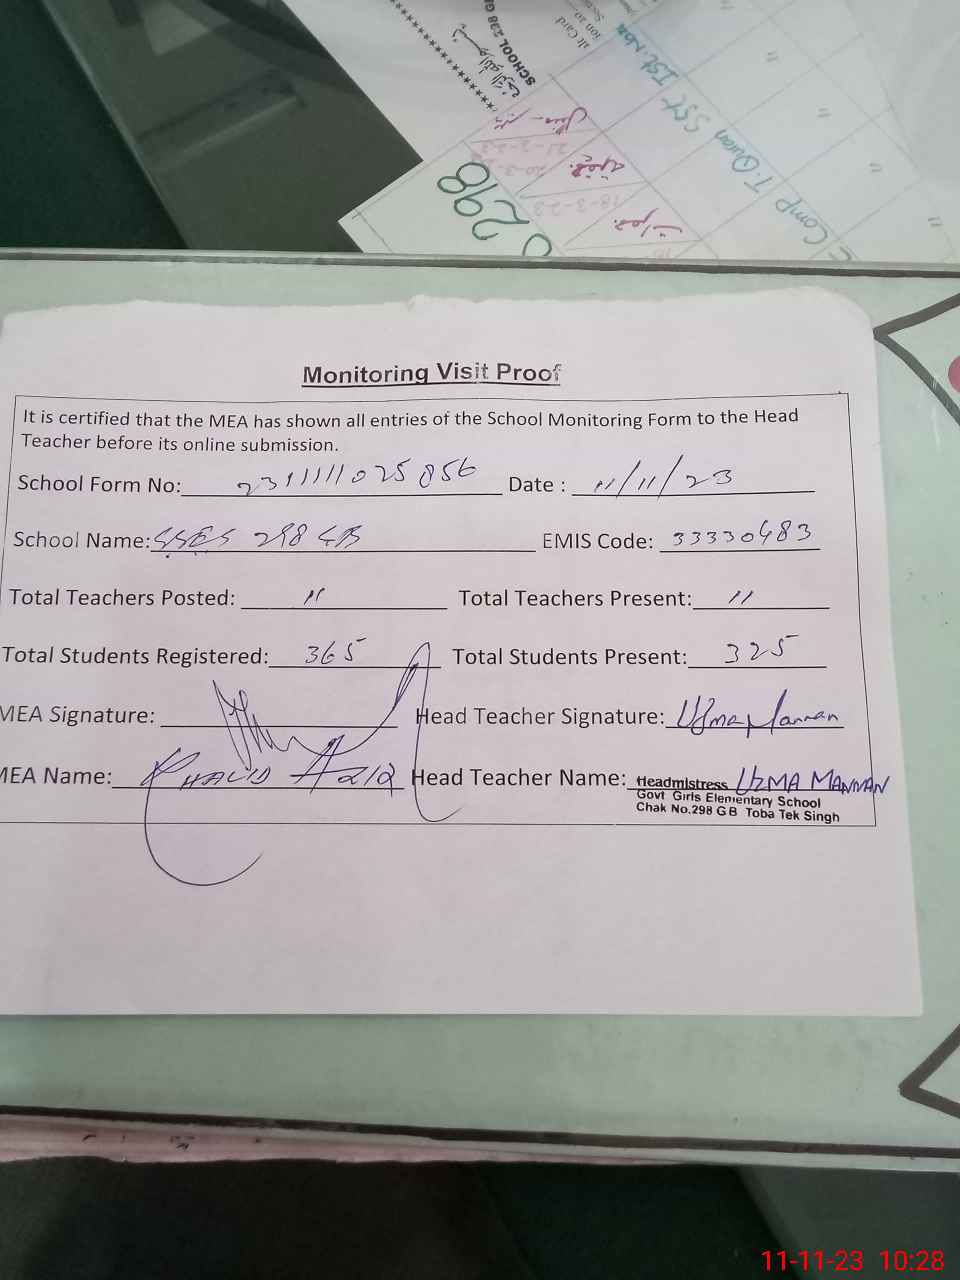 SCHOOL 298 G
Ist. Nov
SST
T. Quran
Comp
298
21-3-23
20-3-23
18-3-23
Monitoring Visit Proof
It is certified that the MEA has shown all entries of the School Monitoring Form to the Head
Teacher before its online submission.
School Form No: 231111025856 Date : 11/11/23
School Name: GGES 298 GB EMIS Code: 33330483
Total Teachers Posted: 11 Total Teachers Present: 11
Total Students Registered: 365 Total Students Present: 325
MEA Signature: Head Teacher Signature: Uzma Mannan
MEA Name: KHALID AZIZ Head Teacher Name: Headmistress UZMA MANNAN
Govt Girls Elementary School
Chak No.298 GB Toba Tek Singh
11-11-23 10:28